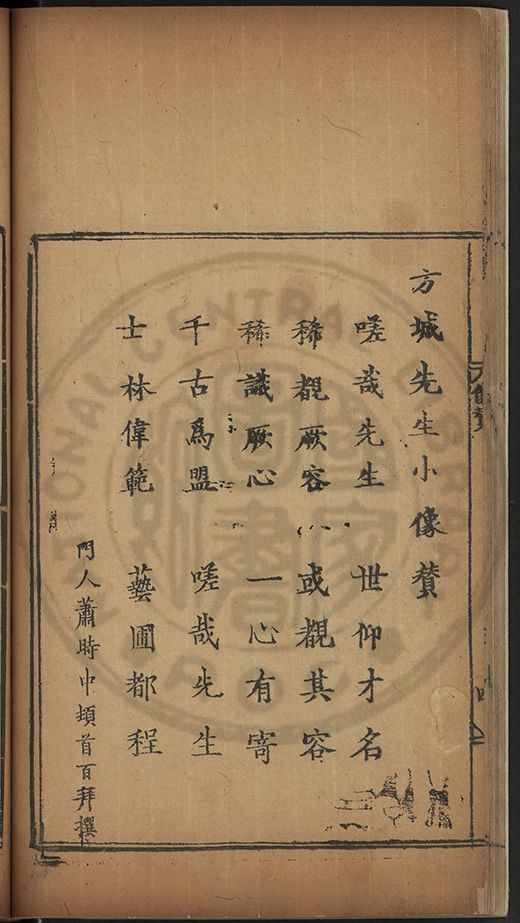 方城先生小像贊
嗟哉先生　世仰才名
稀覩厥容　或觀其容
稀識厥心　一心有寄
千古爲盟　嗟哉先生
士林偉範　藝圃都程
門人蕭時中頓首百拜撰